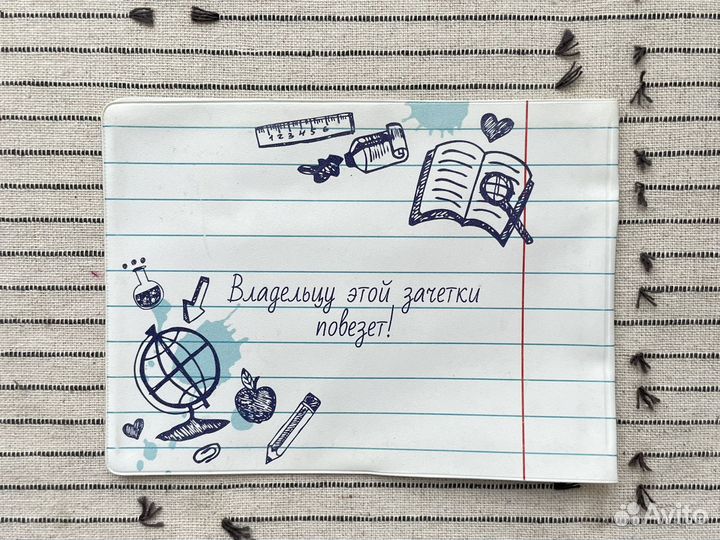 1 2 3 4 5 6
Владельцу этой зачетки
повезет!
Avito